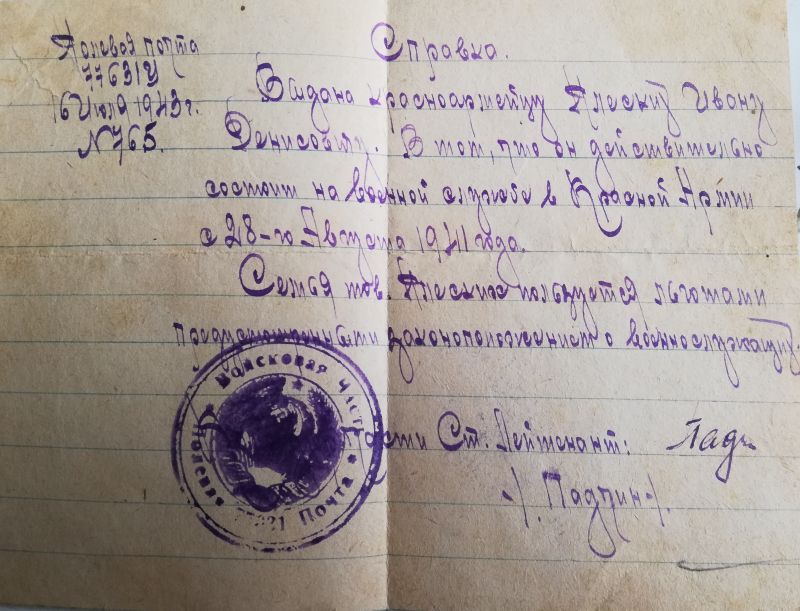 Полевая почта
77631У
16 Июля 1943 г.
№ 765.
Справка.
Выдана красноармейцу Плеских Ивану
Денисовичу. В том, что он действительно
состоит на военной службе в Красной Армии
с 28-го Августа 1941 года.
Семья тов. Плеских пользуется льготами
предусмотренными законоположением о военнослужащих.
части Ст. Лейтенант:
-/. Падчин-/.
Войсковая Часть
Полевая
Почта